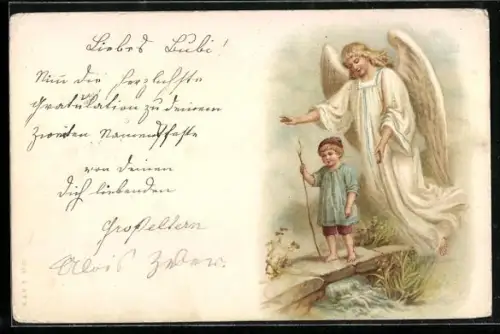 Liebes Bubi!
Nim die herzlichste
Gratulation zu deinem
zweiten Namensfeste
von deinen
dich liebenden
Großeltern
Alois